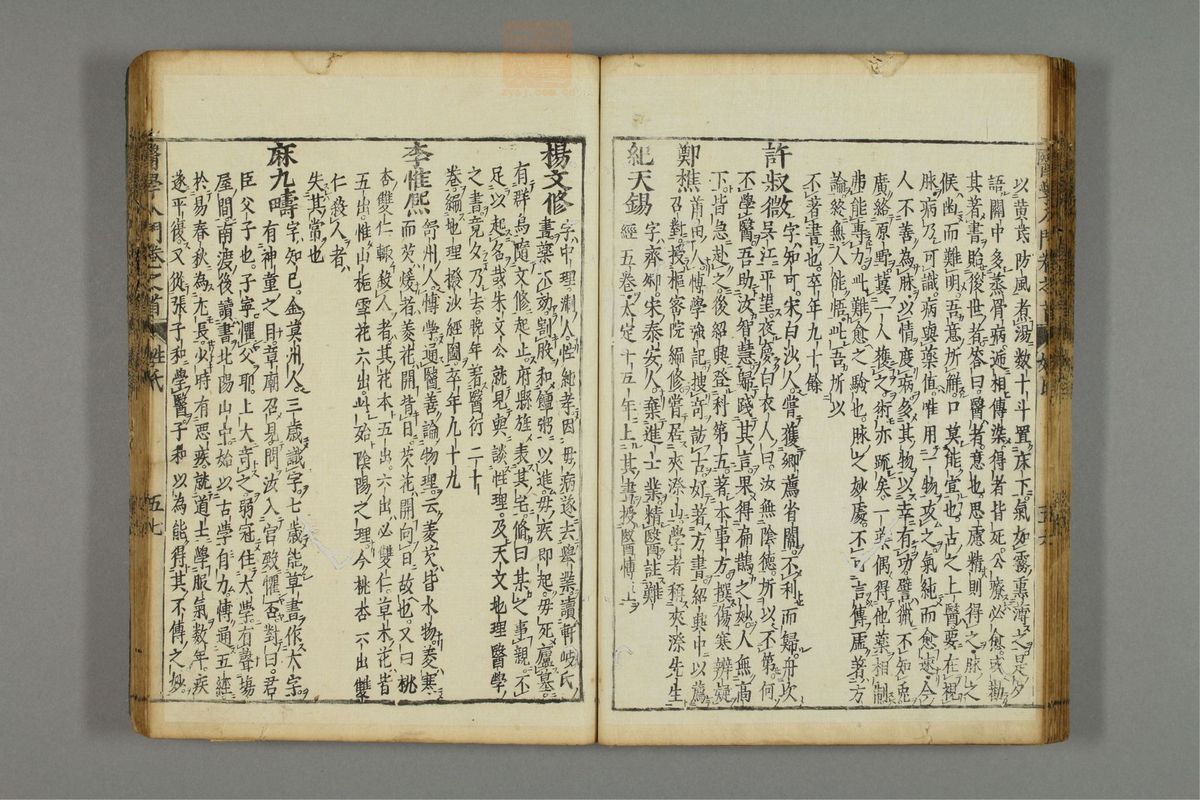 以黃芪防風煮湯數十斗置床下氣如霧熏薄之是夕
語關中多蒸骨病遞相傳染得者皆死公療必愈或勸
其著書貽後世者答曰醫者意也思慮精則得之脉之
候幽而難明吾意所解口莫能宣也古之上醫要在視
脉病乃可識病與藥值唯用一物攻之氣純而愈速今
人不善為脉以情度病多其物以幸有功譬獵不知兎
廣絡原野冀一人獲之術亦疏矣一藥偶得他藥相制
弗能專力此難愈之驗也脉之妙處不可言傳虛著方
論終無人能悟此吾所以
不著書也卒年九十餘
許叔微 字知可宋白沙人嘗獲鄉薦省闈不利而歸舟次
吳江平望夜夢白衣人曰汝無陰德所以不第何
不學醫吾助汝智慧歸踐其言果得扁鵲之妙人無高
下皆急赴之後紹興登科第五著本事方撰傷寒辨疑
鄭樵 莆田人博學強記搜奇訪古好著方書紹興中以薦
召對授樞密院編修嘗居夾漈山學者稱夾漈先生
紀天錫 字齊卿宋泰安人棄進士業精醫註難
經五卷太定十五年上其書授醫博士
楊文修 字中理浙人性純孝因母病遂去舉業讀軒岐氏
書藥不効割股和饘粥以進母疾即起母死廬墓
有群烏隨文修起止府縣旌表其宅脩曰某之事親不
足以起名哉朱文公就見與談性理及天文地理醫學
之書竟夕乃去晚年著醫衍二十
卷編地理撥沙經圖卒年九十九
李惟熙 舒州人博學通醫善論物理云菱芡皆水物菱寒
而芡煖者菱花開背日芡花開向日故也又曰桃
杏雙仁輙殺人者其花本五出六出必雙仁草木花皆
五出惟山梔雪花六出此殆陰陽之理今桃杏六出雙
仁殺人者
失其常也
麻九疇 字知已金莫州人三歲識字七歲能草書作大字
有神童之目章廟召見問汝入宮殿懼否對曰君
臣父子也子寧懼父耶上大奇之弱冠住太學有聲場
屋間南渡後讀書北陽山中始以古學自力博通五經
於易春秋為尤長少時有惡疾就道士學服氣數年疾
遂平復又從張子和學醫子和以為能得其不傳之妙
醫學入門卷一之首 姓氏 五七